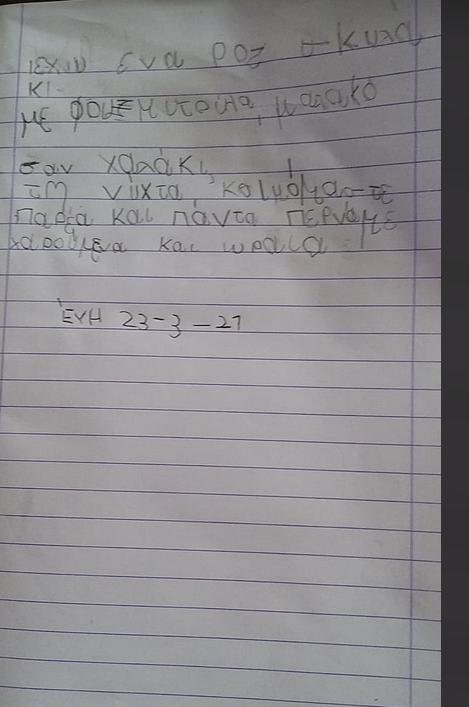 ΙΕΧΙΝ ΕΝα ροζ σ-κυλα
κι.
με φουξ μυτούλα, μαλακό
σαν χαλάκι,
τη νύχτα, κοιμόμασ-τε
παρέα και πάντα περνάμε
χαρούμενα και ωραία!
ΈΥΗ 23-3-21